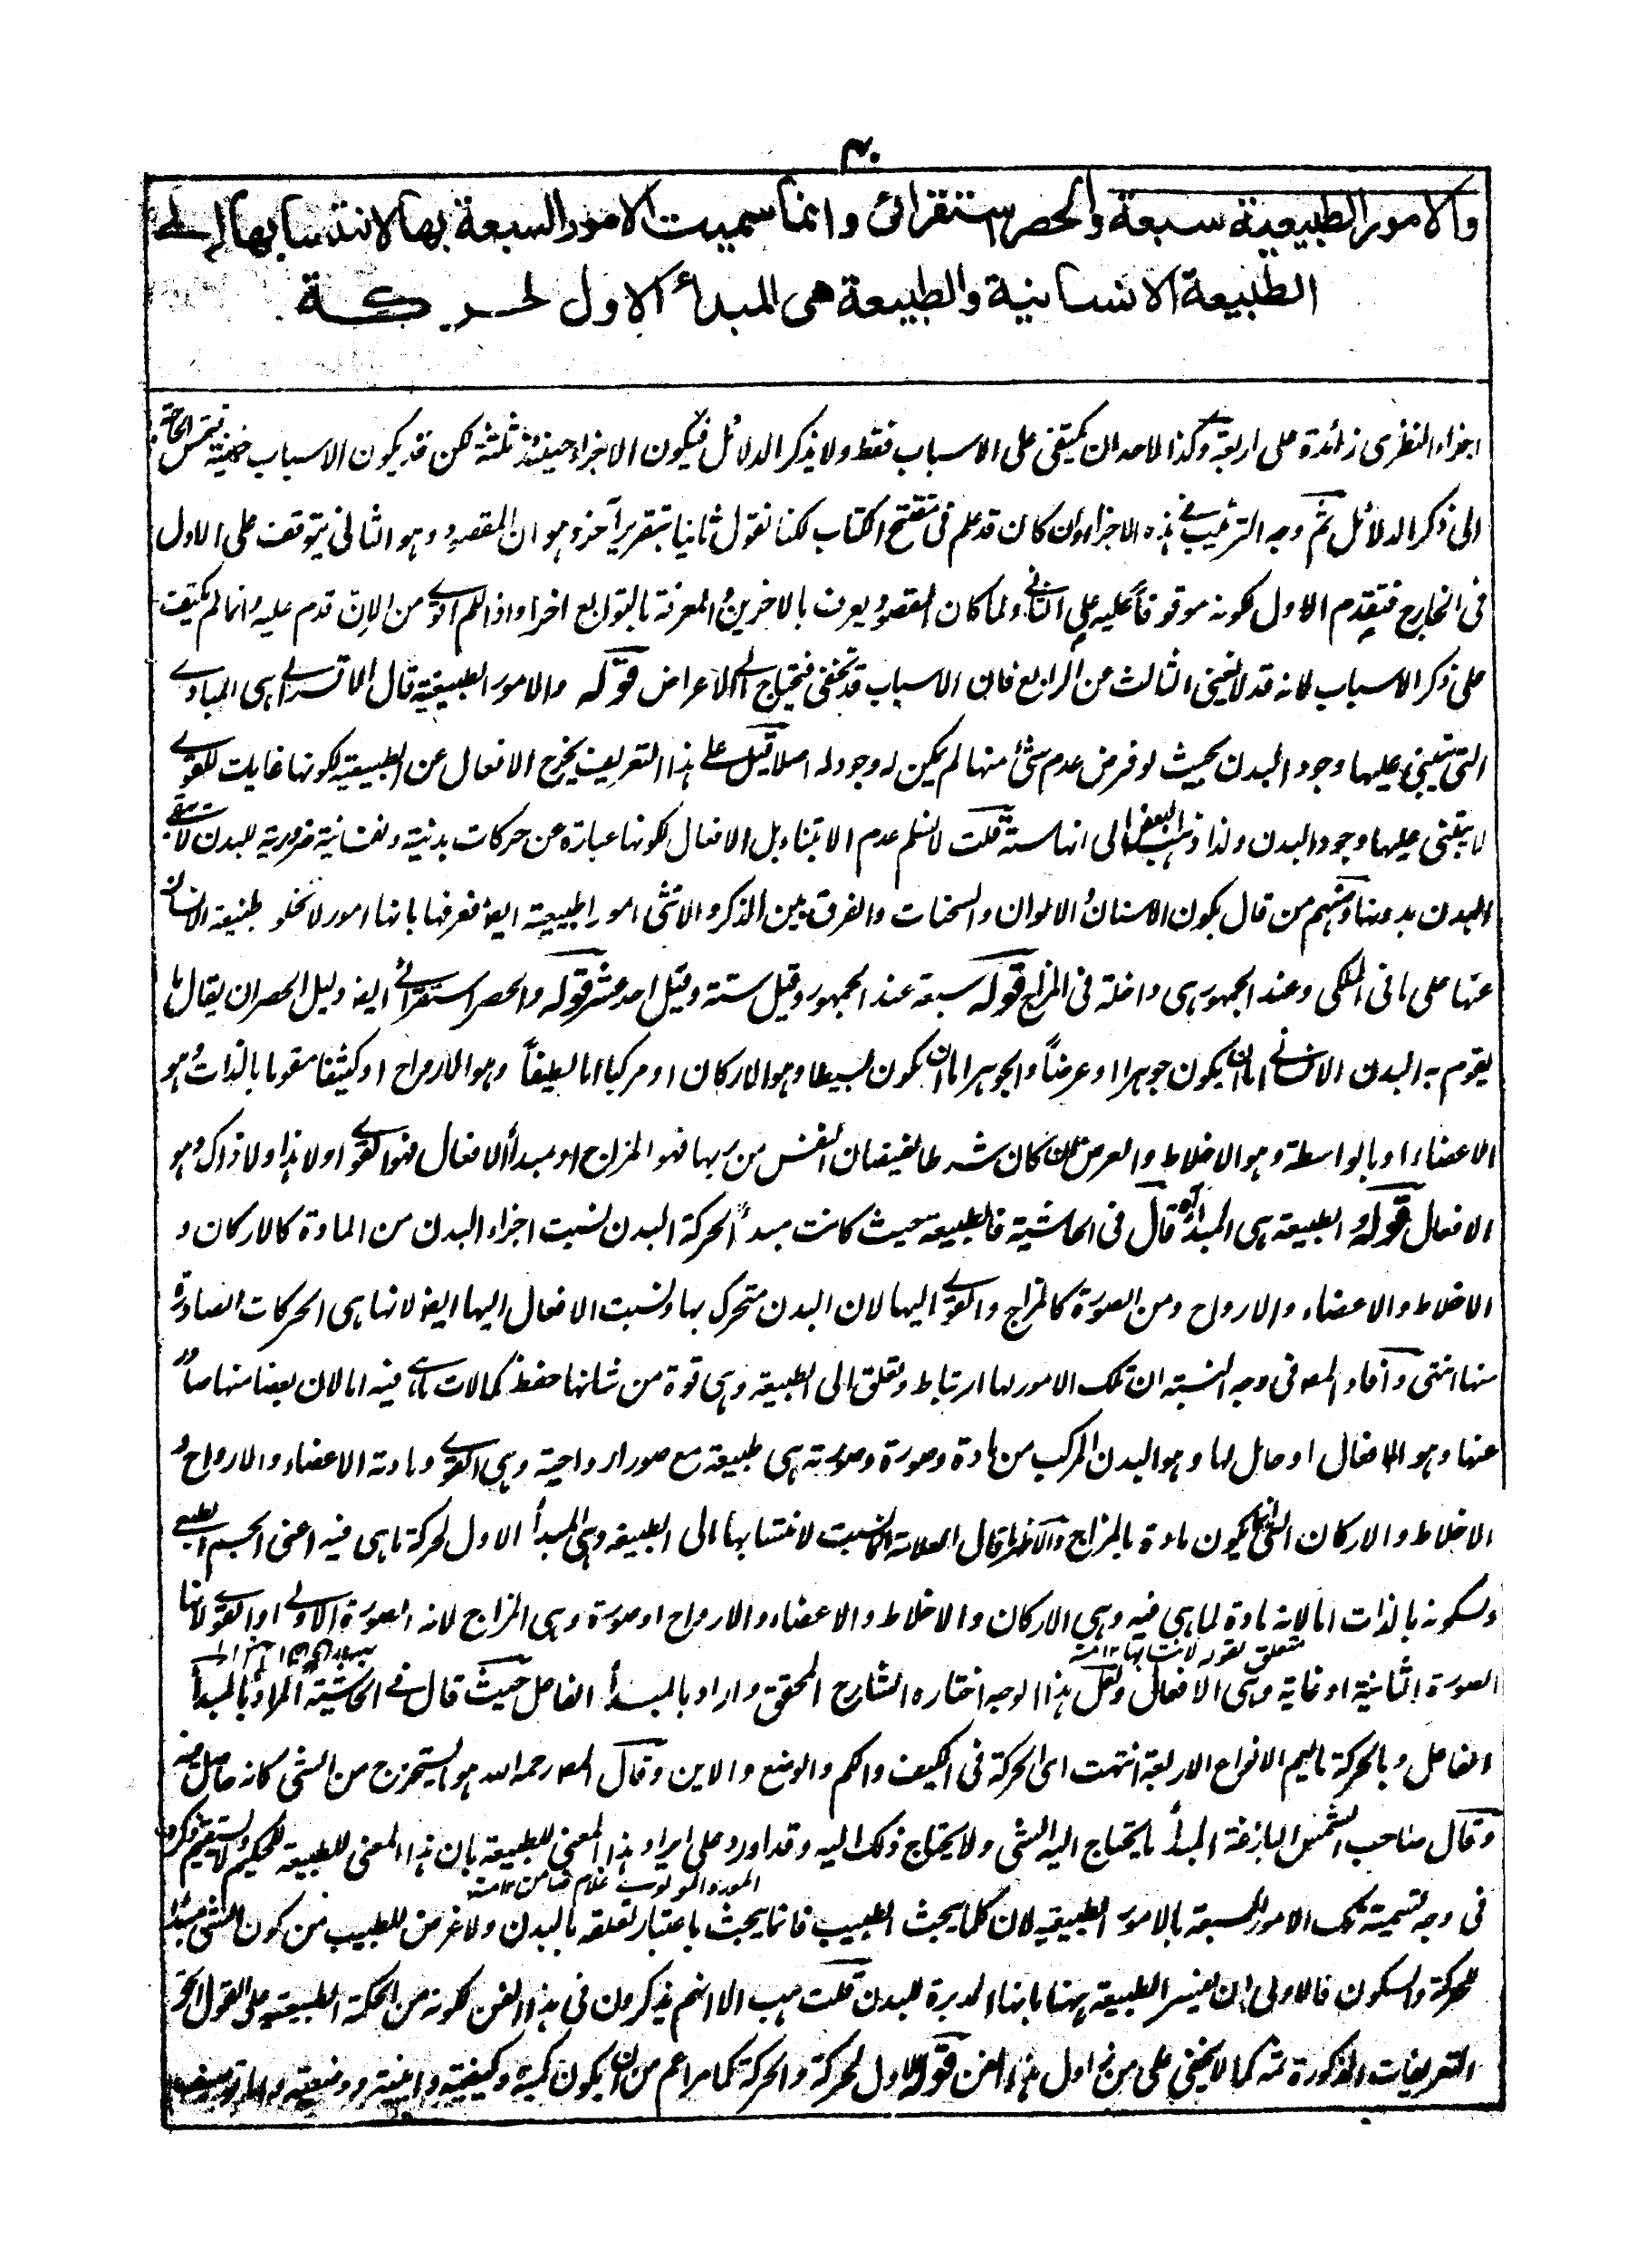 ۴۰
والامور الطبيعية سبعة والحصر استقرائى وانما سميت الامور السبعة بها لانتسابها الى
الطبيعة الانسانية والطبيعة هى المبدأ الاول لحركة
اجزاء النظرى زائدة على اربعة وكذا لاحد ان يكتفى على الاسباب فقط ولا يذكر الدلائل فيكون الاجزاء حينئذ ثلثة لكن قد يكون الاسباب خفية فتمس الحاجة
الى ذكر الدلائل ثم وجه الترتيب فى هذه الاجزاء وان كان قد علم فى مفتتح الكتاب لكنا نقول ثانيا بتقرير آخر وهو ان المقصود وهو الثانى يتوقف على الاول
فى الخارج فتقدم الاول لكونه موقوفاً عليه على الثانى ولما كان المقصود يعرف بالاخرين والمعرفة بالتوابع اخرا واذ اللم اقوى من الان قدم عليه وانما لم يكتف
على ذكر الاسباب لانه قد لا يغنى الثالث من الرابع فان الاسباب قد تخفى فتحتاج الى الاعراض قوله والامور الطبيعية قال الاقسرائى هى المبادى
التى يبتنى عليها وجود البدن بحيث لو فرض عدم شئ منها لم يكن له وجود له اصلا قيل على هذا التعريف يخرج الافعال عن الطبيعية لكونها غايات للقوى
لا يبتنى عليها وجود البدن ولذا ذهب البعض الى انها ستة قلت لا نسلم عدم الابتناء بل الافعال لكونها عبارة عن حركات بدنية ونفسانية ضرورية للبدن لا يبقى
البدن بدونها ومنهم من قال بكون الاسنان والالوان والسحنات والفرق بين الذكر والانثى امورا طبيعية ايضا فعرفها بانها امور لا تخلو طبيعة الانسان
عنها على ما فى المكى وعند الجمهور هى داخلة فى المزاج قوله سبعة عند الجمهور وقيل ستة وقيل احد عشر قوله والحصر استقرائى ايضا دليل الحصر ان يقال ما
يقوم به البدن الانسانى اما ان يكون جوهرا او عرضاً والجوهر اما ان يكون بسيطا وهو الاركان او مركبا اما لطيفاً وهو الارواح او كثيفا مقوما بالذات وهو
الاعضاء او بالواسطة وهو الاخلاط والعرض ان كان شرطا لفيضان النفس من ربها فهو المزاج او مبدأ الافعال فهو القوى او لا هذا ولا ذاك وهو
الافعال قوله والطبيعة هى المبدأ آه قال فى الحاشية فالطبيعة حيث كانت مبدأ الحركة البدن نسبت اجزاء البدن من المادة كالاركان و
الاخلاط والاعضاء والارواح ومن الصورة كالمزاج والقوى اليها لان البدن متحرك بها ونسبت الافعال اليها ايضا لانها هى الحركات الصادرة
منها انتهى وافاد المص فى وجه النسبة ان تلك الامور لها ارتباط وتعلق الى الطبيعة وهى قوة من شانها حفظ كمالات ما هى فيه اما لان بعضا منها صادر
عنها وهو الافعال او حامل لها وهو البدن المركب من مادة وصورة وصورته هى طبيعة مع صور ازواجية وهى القوى ومادته الاعضاء والارواح و
الاخلاط والاركان التى يكون مادة بالمزاج والاظهر ما قال العلامة انما نسبت لانتسابها الى الطبيعة وهى المبدأ الاول لحركة ما هى فيه اعنى الجسم الطبيعى
وسكونه بالذات اما لانه مادة لما هى فيه وهى الاركان والاخلاط والاعضاء والارواح او صورة وهى المزاج لانه الصورة الاولى او القوى لانها
متعلق بقوله لانتسابها ١٢ منه
الصورة الثانية او غاية وهى الافعال ولعل هذا الوجه اختاره الشارح المحقق واراد بالمبدأ الفاعل حيث قال فى الحاشية المراد بالمبدأ
الفاعل وبالحركة ما يعم الانواع الاربعة انتهت اى الحركة فى الكيف والكم والوضع والاين وقال المص رحمه الله هو ما يستخرج من الشئ كانه حاصل منه
وقال صاحب الشمس البازغة المبدأ ما يحتاج اليه الشئ ولا يحتاج ذلك اليه وقد اورد على ايراد هذا المعنى للطبيعة بان هذا المعنى للطبيعة للحكيم لا يستقيم ذكره
المورد المولوى غلام ضامن ١٢ منه
فى وجه تسمية تلك الامور السبعة بالامور الطبيعية لان كلما يبحث الطبيب فانما يبحث باعتبار تعلقه بالبدن ولا غرض للطبيب من كون الشئ مبدأ
للحركة والسكون فالاولى ان يفسر الطبيعة ههنا بانها المدبرة للبدن قلت هب الا انهم يذكرون فى هذا الفن لكونه من الحكمة الطبيعية على القول الحق
التعريفات المذكورة ثمه كما لا يخفى على من زاول هذا الفن قوله الاول لحركة والحركة كما مر اعم من ان يكون كمية وكيفية واينية ووضعية